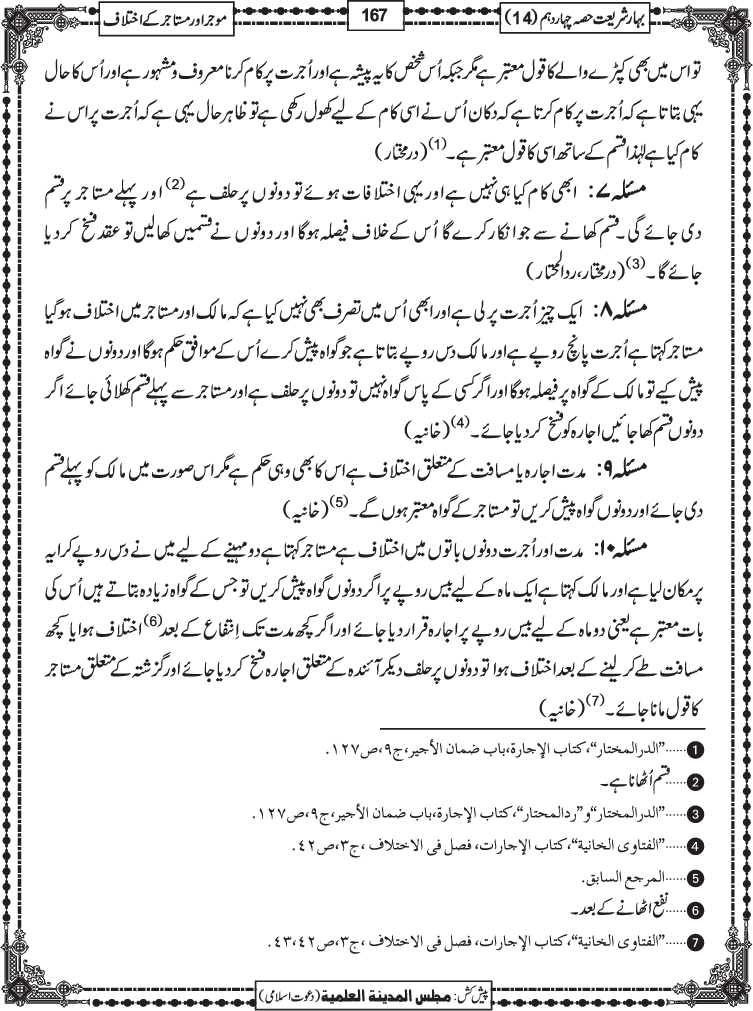 بہارِ شریعت حصہ چہاردہم (14)
167
موجر اور مستاجر کے اختلاف
تو اس میں بھی کپڑے والے کا قول معتبر ہے مگر جبکہ اُس شخص کا یہ پیشہ ہے اور اُجرت پر کام کرنا معروف و مشہور ہے اور اُس کا حال
یہی بتاتا ہے کہ اُجرت پر کام کرتا ہے کہ دکان اُس نے اسی کام کے لیے کھول رکھی ہے تو ظاہر حال یہی ہے کہ اُجرت پر اس نے
کام کیا ہے لہٰذا قسم کے ساتھ اسی کا قول معتبر ہے۔(1) (درمختار)
مسئلہ ۷: ابھی کام کیا ہی نہیں ہے اور یہی اختلافات ہوئے تو دونوں پر حلف ہے(2) اور پہلے مستاجر پر قسم
دی جائے گی۔ قسم کھانے سے جو انکار کرے گا اُس کے خلاف فیصلہ ہوگا اور دونوں نے قسمیں کھالیں تو عقد فسخ کر دیا
جائے گا۔(3) (درمختار، ردالمحتار)
مسئلہ ۸: ایک چیز اُجرت پر لی ہے اور ابھی اُس میں تصرف بھی نہیں کیا ہے کہ مالک اور مستاجر میں اختلاف ہوگیا
مستاجر کہتا ہے اُجرت پانچ روپے ہے اور مالک دس روپے بتاتا ہے جو گواہ پیش کرے اُس کے موافق حکم ہوگا اور دونوں نے گواہ
پیش کیے تو مالک کے گواہ پر فیصلہ ہوگا اور اگر کسی کے پاس گواہ نہیں تو دونوں پر حلف ہے اور مستاجر سے پہلے قسم کھلائی جائے اگر
دونوں قسم کھا جائیں اجارہ کو فسخ کر دیا جائے۔(4) (خانیہ)
مسئلہ ۹: مدت اجارہ یا مسافت کے متعلق اختلاف ہے اس کا بھی وہی حکم ہے مگر اس صورت میں مالک کو پہلے قسم
دی جائے اور دونوں گواہ پیش کریں تو مستاجر کے گواہ معتبر ہوں گے۔(5) (خانیہ)
مسئلہ ۱۰: مدت اور اُجرت دونوں باتوں میں اختلاف ہے مستاجر کہتا ہے دو مہینے کے لیے میں نے دس روپے کرایہ
پر مکان لیا ہے اور مالک کہتا ہے ایک ماہ کے لیے بیس روپے پر اگر دونوں گواہ پیش کریں تو جس کے گواہ زیادہ بتاتے ہیں اُس کی
بات معتبر ہے یعنی دو ماہ کے لیے بیس روپے پر اجارہ قرار دیا جائے اور اگر کچھ مدت تک اِنتفاع کے بعد(6) اختلاف ہوا یا کچھ
مسافت طے کر لینے کے بعد اختلاف ہوا تو دونوں پر حلف دیکر آئندہ کے متعلق اجارہ فسخ کر دیا جائے اور گزشتہ کے متعلق مستاجر
کا قول مانا جائے۔(7) (خانیہ)
1 ......"الدرالمختار"، کتاب الإجارۃ، باب ضمان الأجیر، ج۹، ص۱۲۷.
2 ......قسم اُٹھانا ہے۔
3 ......"الدرالمختار" و "ردالمحتار"، کتاب الإجارۃ، باب ضمان الأجیر، ج۹، ص۱۲۷.
4 ......"الفتاوی الخانیۃ"، کتاب الإجارات، فصل فی الاختلاف، ج۳، ص۴۲.
5 ......المرجع السابق.
6 ......نفع اٹھانے کے بعد۔
7 ......"الفتاوی الخانیۃ"، کتاب الإجارات، فصل فی الاختلاف، ج۳، ص۴۳،۴۲.
پیش کش: مجلس المدینۃ العلمیۃ (دعوتِ اسلامی)